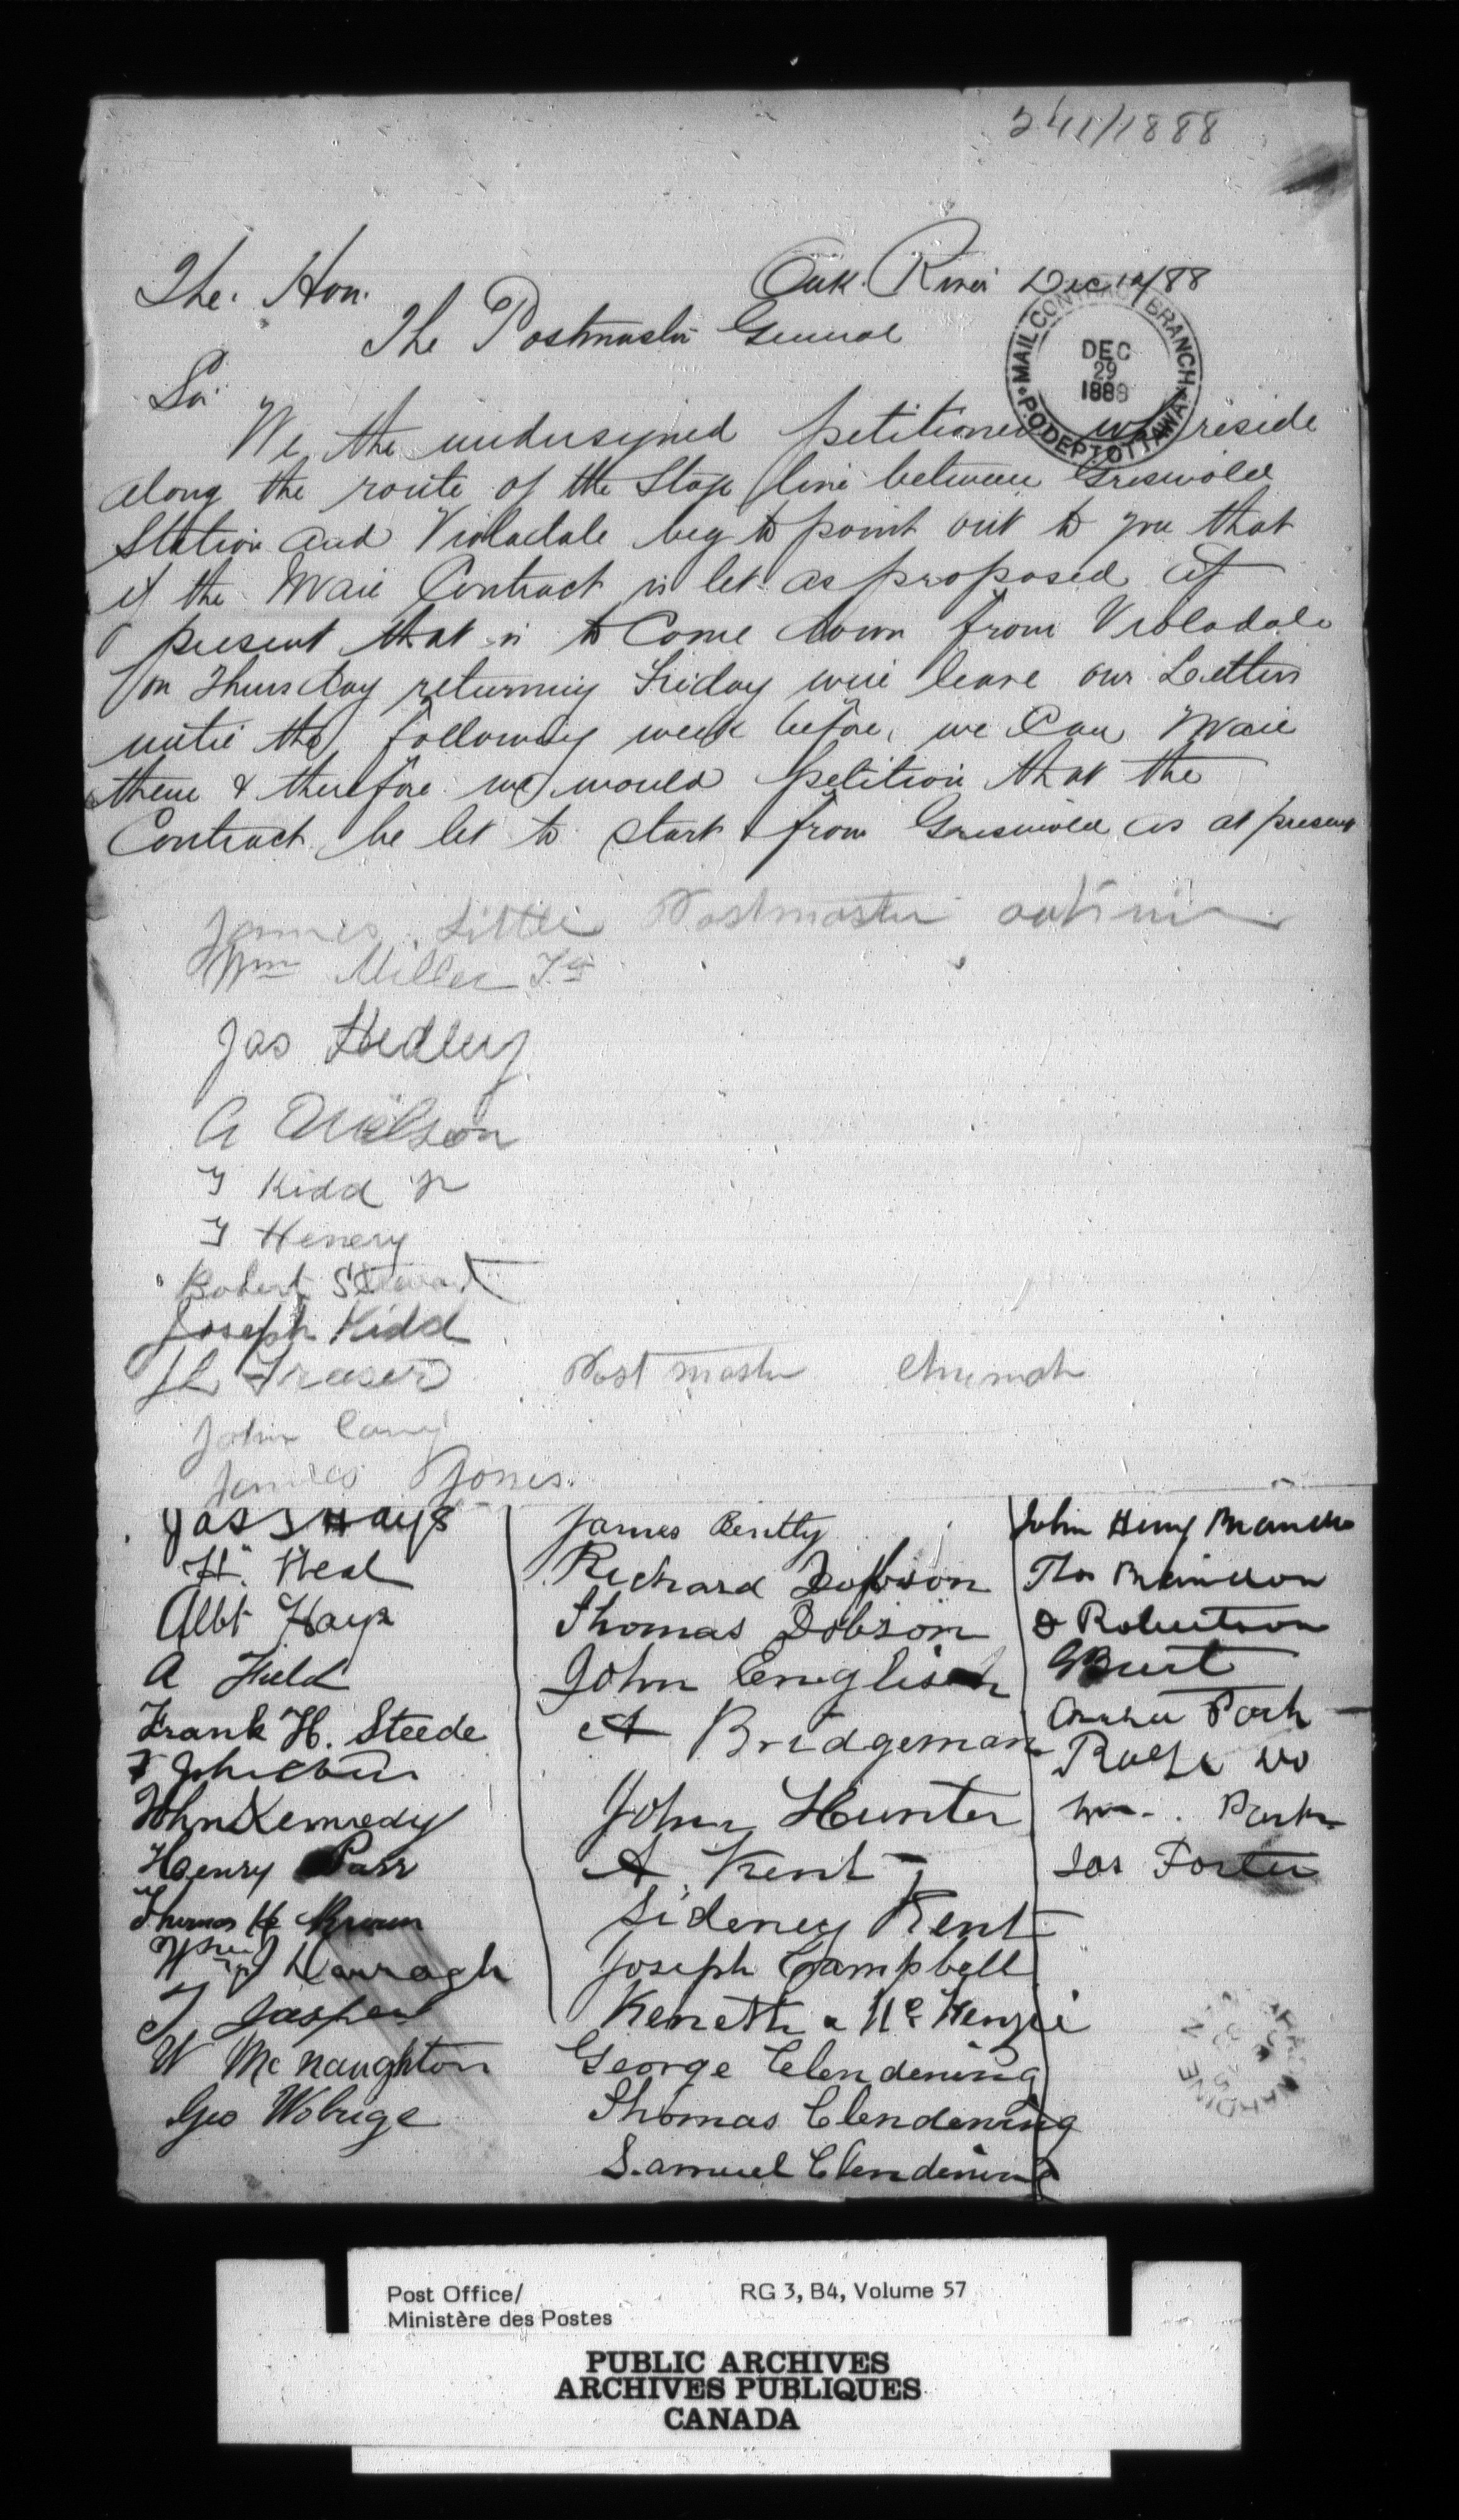 241/1888
Oak River Dec 12/88
The Hon.
The Postmaster General
MAIL CONTRACT BRANCH
DEC
29
1888
P.O. DEPT OTTAWA
Sir
We the undersigned petitioners who reside
along the route of the Stage line between Griswold
Station and Violadale beg to point out to you that
if the Mail Contract is let as proposed at
present that is to Come down from Violadale
on Thursday returning Friday will leave our Letters
until the following week before we Can Mail
them & therefore we would petition that the
Contract be let to start from Griswold as at present
James Little Postmaster
Wm Miller
Jas Hedley
A
T Kidd Jr
T Henery
Robert Stewart
Joseph Kidd
Fraser Post master
John
James Jones
Jas Hays
H. Neal
Albt Hays
A Field
Frank H. Steede
John Kennedy
Henry Parr
Thomas Brown
Darragh
T Jasper
W McNaughton
Geo
James Bently
Richard Dobson
Thomas Dobson
John English
A Bridgeman
John Hunter
A. Kent
Sideney Kent
Joseph Campbell
Keneth McKenzie
George Clendening
Thomas Clendening
Samuel Clendening
John Henry
Thos
Robertson
Jas Foster
Post Office/
Ministère des Postes
RG 3, B4, Volume 57
PUBLIC ARCHIVES
ARCHIVES PUBLIQUES
CANADA